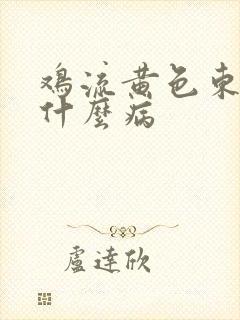 鸡流黄色东
什麼病
盧達欣